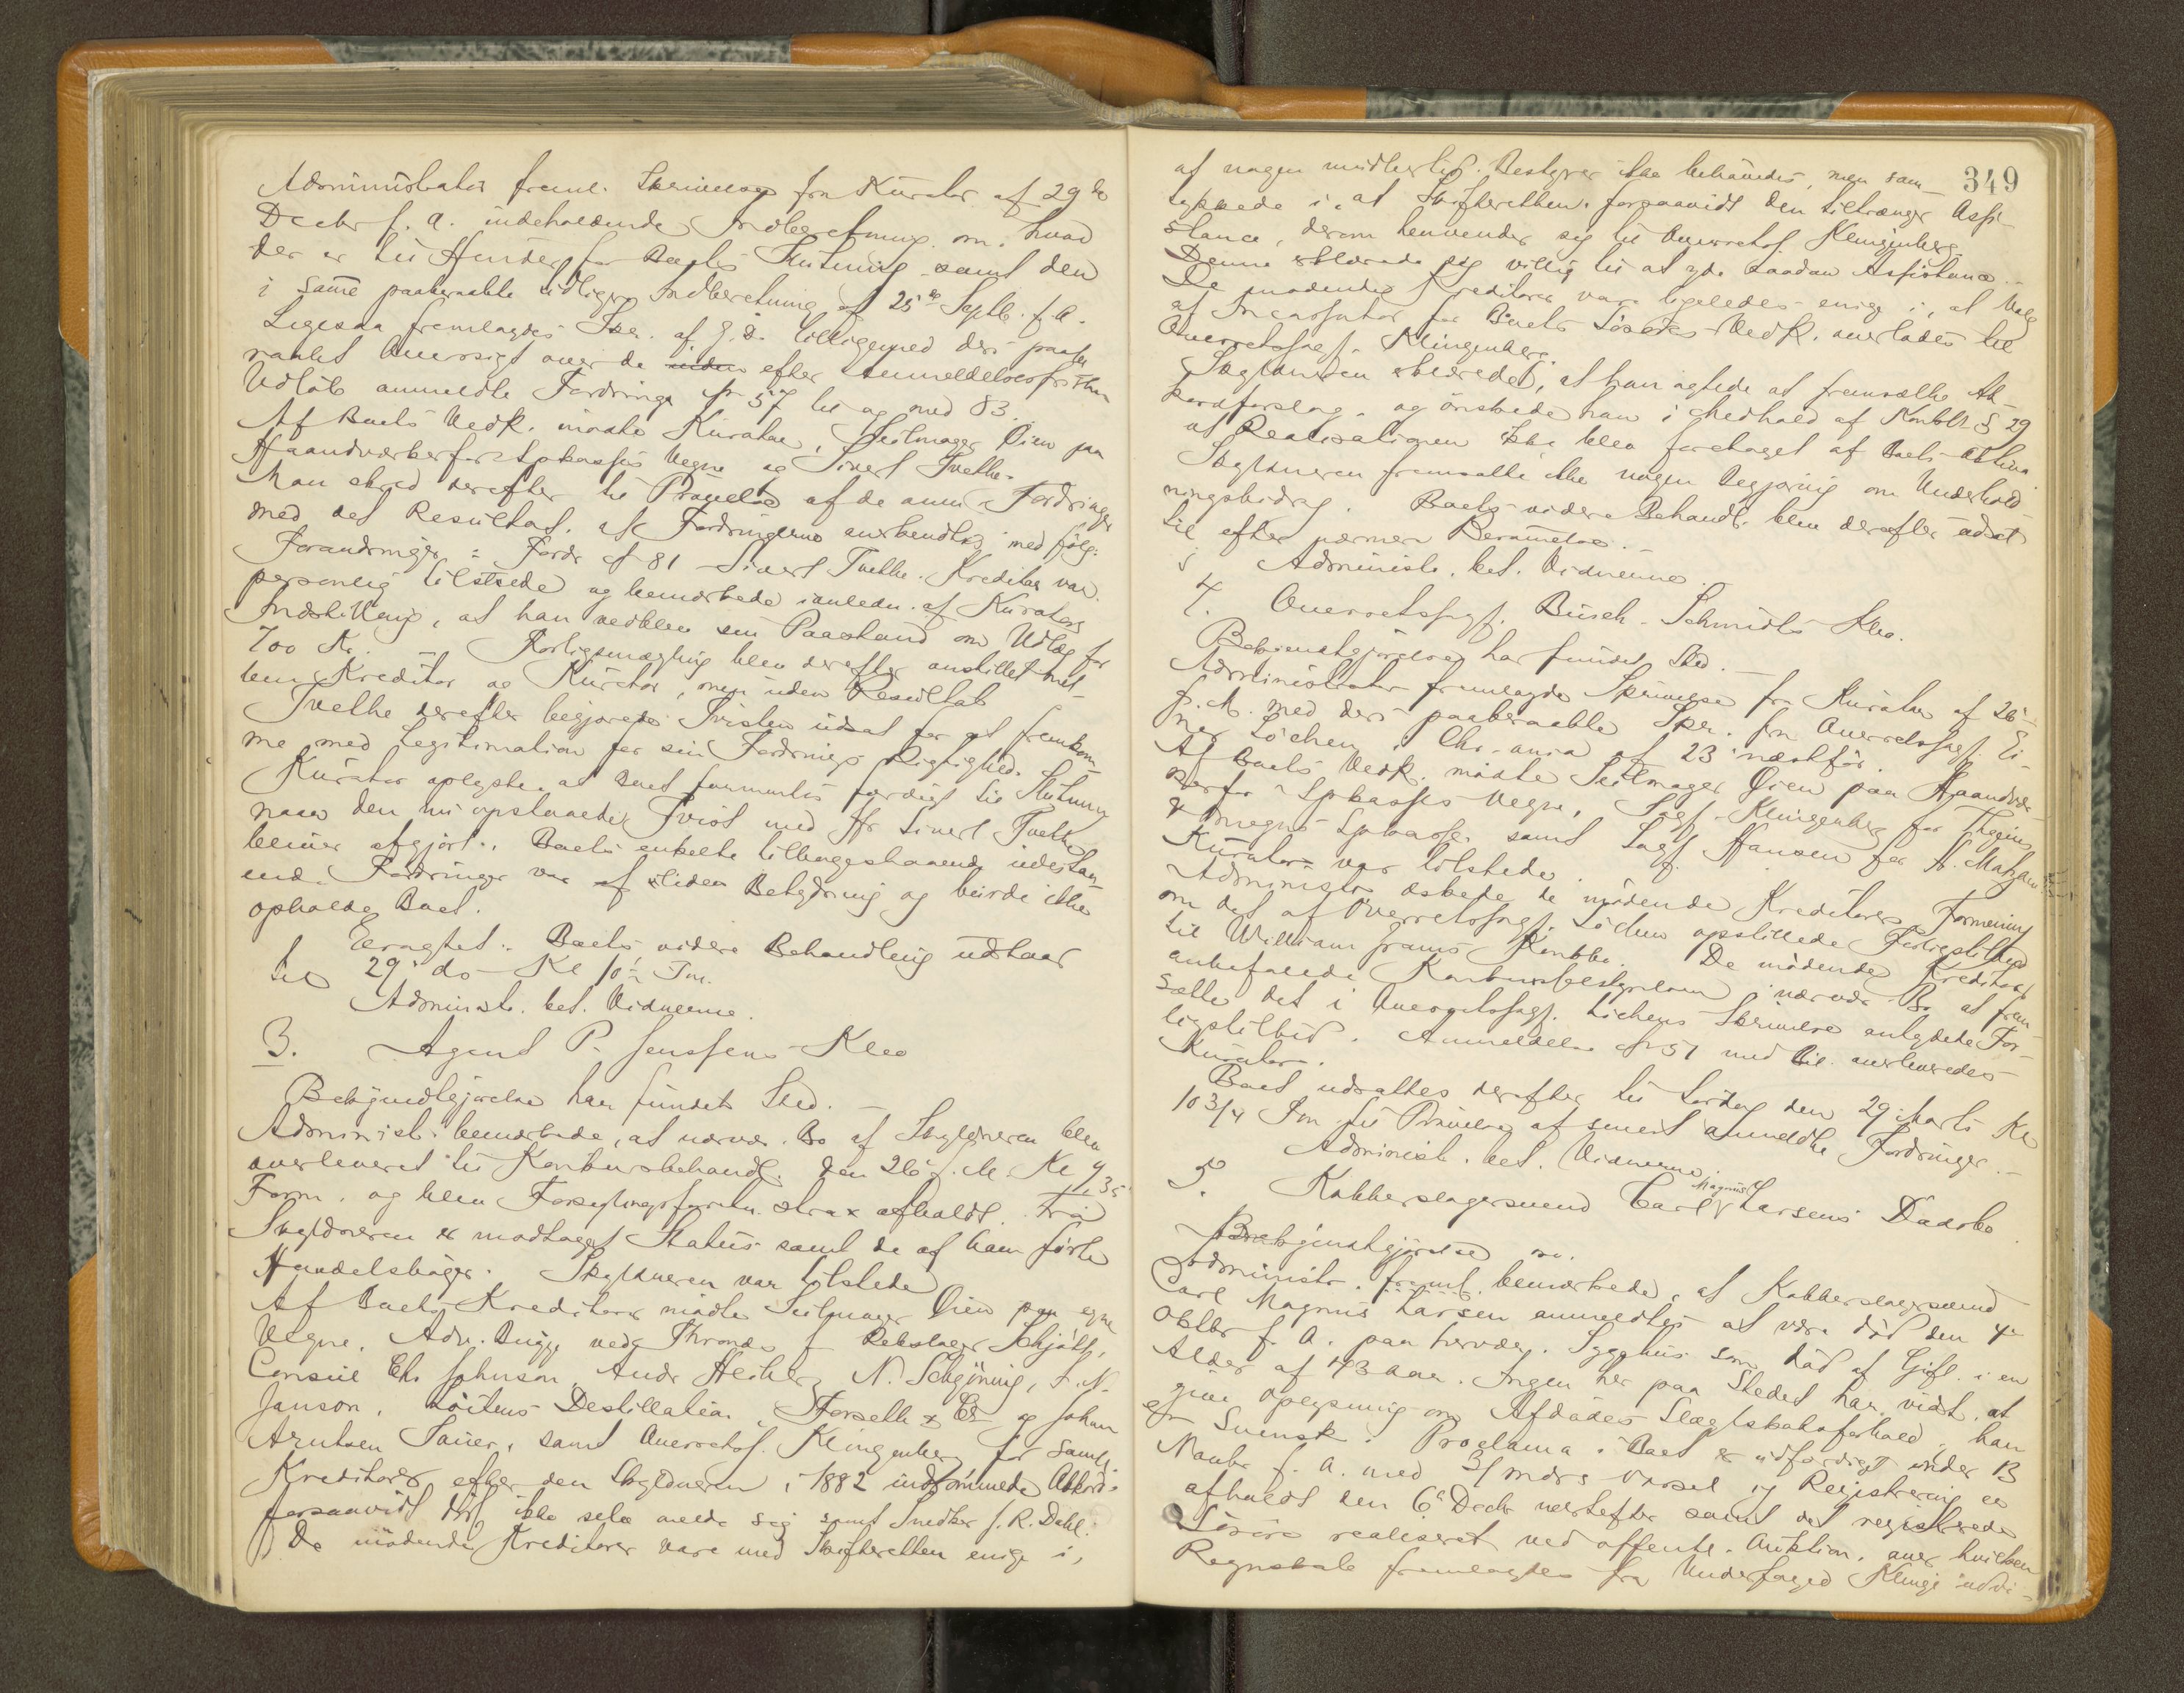 Administrator freml. Skrivelse fra Kurator af 29de
Decbr f. A. indeholdende Indberetning om, hvad
der er til Hinder for Boets Slutning samt den
i samme paaberaabte tidligere Indberetning af 25de Septb. f. A.
Ligesaa fremlagdes Skr. af g. D. tilligemed den paabe
raabte Oversigt over de efter Anmeldelsesfristens
Udløb anmeldte Fordringer № 57 til og med 83.
Af Boets Vedk. mødte Kurator, Seilmager Øien paa
Haandværkerfor. Spkasses Vegne og Sivert Tvethe.
Man skred derefter til Prøvelse af de anm. Fordringer
med det Resultat, at Fordringerne anerkendtes med følg.
Forandringer: Fordr № 81 Sivert Tvethe. Kreditor var
personlig tilstede og bemærkede i anledn. af Kurators
Indstilling, at han vedblev sin Paastand om Udlæg for
700 Kr. — Forligsmægling blev derefter anstillet mel-
lem Kreditor og Kurator, men uden Resultat
Tvethe derefter begjærede Tvisten udsat for at fremkom-
me med Legitimation for sin Fordrings Rigtighed.
Kurator oplyste, at Boet formentes færdigt til Slutning
naar den nu opstaaede Tvist med Hr Sivert Tvethe
bliver afgjort. Boets enkelte tilbagestaaende udestaa-
ende Fordringer var af liden Betydning og burde ikke
opholde Boet.
Eragtet: Boets videre Behandling udstaar
til 29de ds Kl 10½ Fm.
Administr. bet. Vidnerne.
3. Agent P. Jenssens Kbo
Bekjendtgjørelse har fundet Sted. —
Administ. bemærkede, at nærvær. Bo af Skyldneren blev
overleveret til Konkursbehandl. den 26 f. M. Kl 9,35
Form. og blev Forseglingsforretn. strax afholdt. Fra
Skyldneren er modtaget Status samt de af ham førte
Handelsbøger. Skyldneren var tilstede
Af Boets Kreditorer mødte Seilmager Øien paa egne
Vegne, Adv. Bugge vedg Thrond for Rebslager Schjøtt,
Consul Chr Johnson, Andr Heiberg, N. Schjöning, F. N.
Janson, Löitens Destillation, Forsell & Co og Johan
Arntsen Sauer, samt Overretssf. Klingenberg for samtl.
Kreditorer efter den Skyldneren i 1882 indrømmede Akkord,
forsaavidt de ikke selv melde sig samt Snedker J. R. Dahl.
De mødende Kreditorer vare med Skifteretten enige i,
349
at nogen midlertid. Bestyrer ikke behøvedes, men sam-
tykkede i, at Skifteretten, forsaavidt den tiltrænger Assi-
stance, derom henvender sig til Overretssf. Klingenberg.
Denne erklærede sig villig til at yde saadan Assistance.
De mødende Kreditorer vare ligeledes enige i, at Valg
af Incassator for Boets Løsøres Vedk. overlades til
Overretssagf. Klingenberg.
Skyldneren erklærede, at han agtede at fremsætte Ak-
kordforslag, og ønskede han i Medhold af Konkl. § 29
at Realisationen ikke blev foretaget af Boets Aktiva
Skyldneren fremsatte ikke nogen Begjæring om Underhold-
ningsbidrag. Boets videre Behandl. blev derefter udsat
til efter nærmere Berammelse.
Administr. bet. Vidnerne.
4. Overretssagf. Busch-Schmidts Kbo.
Bekjendtgjørelse har fundet Sted. —
Administrator fremlagde Skrivelse fra Kurator af 26de
f. M. med deri paaberaabte Skr. fra Overretssagf. Ei-
nar Löchen i Chr.ania af 23de næstfør.
Af Boets Vedk. mødte Seilmager Øien paa Haandvær-
kerfor. Spkasses Vegne, Sagf. Klingenberg for Thjems
& Omegns Spkasse samt Sagf. Hansen for H. Matzow.
Kurator var tilstede.
Administr. æskede de mødende Kreditorers Formening
om det af Overretssagf. Löchen opstillede Forligstilbud
til William Frams Konkbo. De mødende Kreditorer
anbefalede Konkursbestyrelsen i nærvær. Bo at frem
sætte det i Overretssagf. Löchens Skrivelse antydede For-
ligstilbud. Anmeldelse № 51 med Bil. overleveredes
Kurator.
Boet udsattes derefter til Lørdag den 29 Marts Kl
10 3/4 Fm til Prøvelse af senest anmeldte Fordringer. —
Administr. bet. Vidnerne.
5. Kobberslagersvend Carl Magnus Larsens Dødsbo.
Bekjendtgjørelse m.
Administr. fremt. bemærkede, at Kobberslagersvend
Carl Magnus Larsen anmeldtes at være død den 4de
Oktbr f. A. paa herværr. Sygehus som død af Gift i en
Alder af 43 Aar. Ingen her paa Stedet har vidst at
give Oplysning om Afdødes Slægtskabsforhold, han
er Svensk. Proclama i Boet er udfærdiget under 13
Novbr f. A. med 3/mdrs Varsel og Registrering er
afholdt den 6te Decbr næstefter samt det registrerede
Løsøre realiseret ved offentl. Auktion, over hvilken
Regnskab fremlagdes fra Underfoged Klinge udvi-